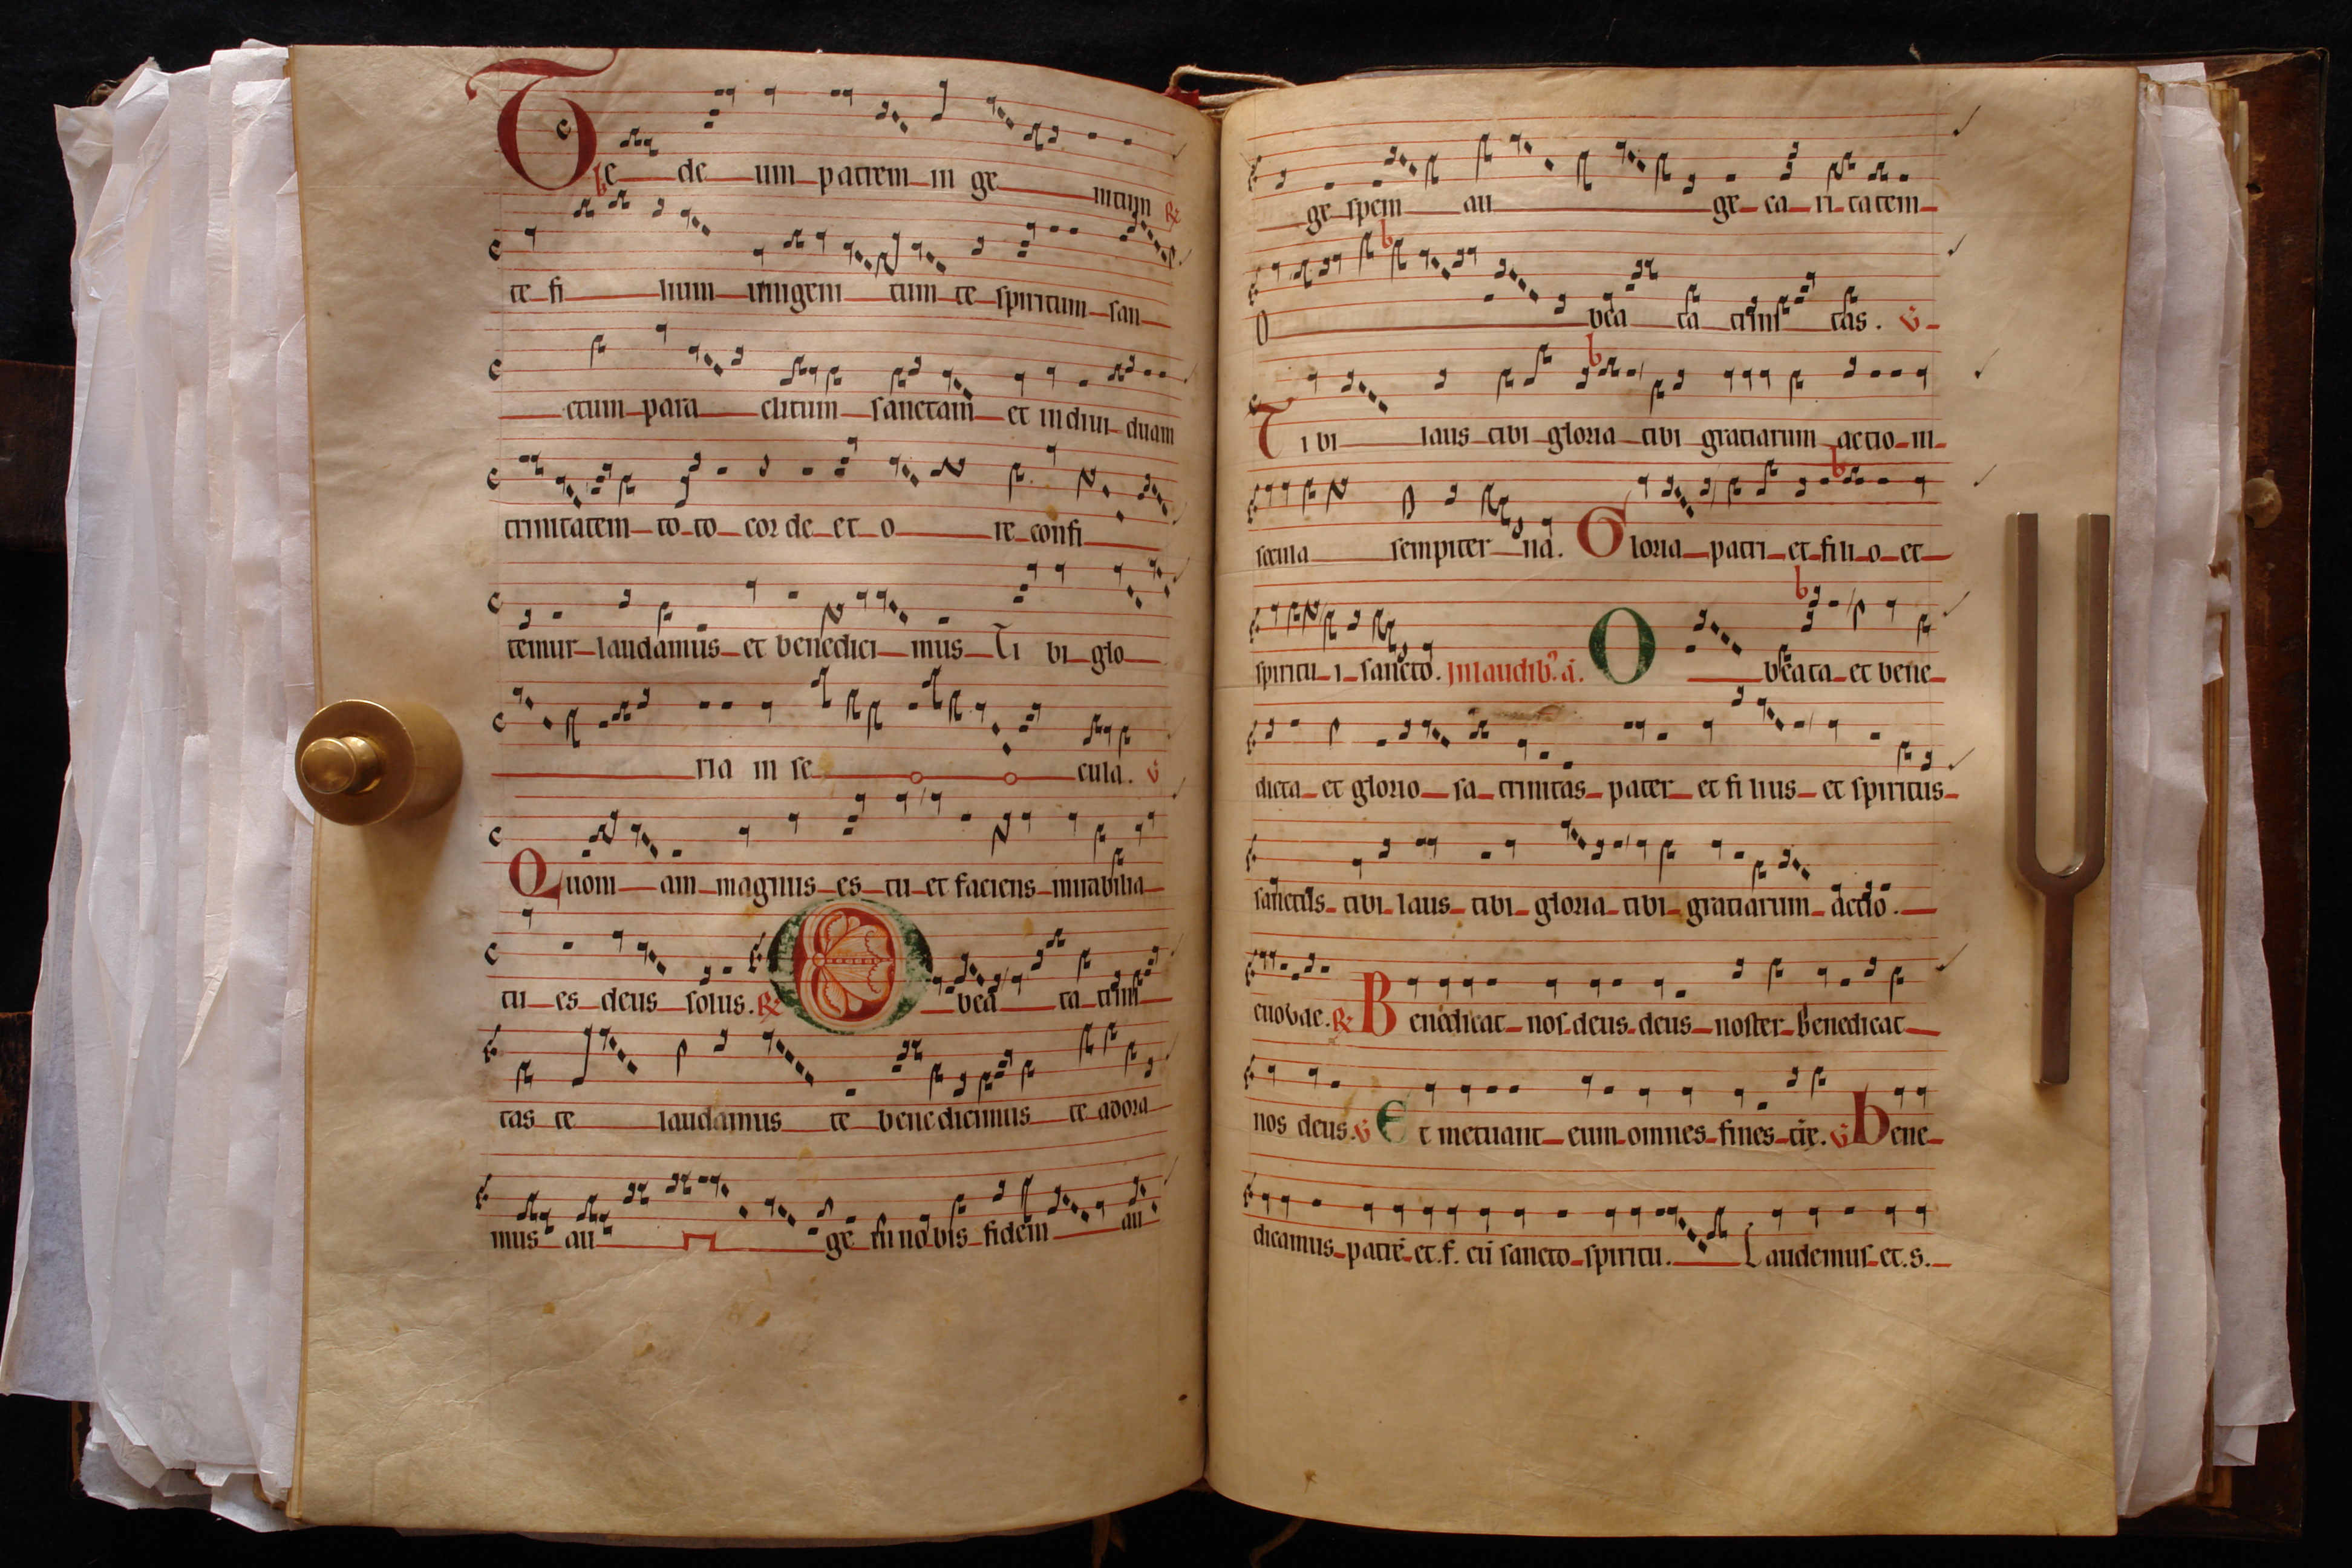 Te deum patrem ingenitum
te filium unigenitum te spiritum san
ctum paraclitum sanctam et indiuiduam
trinitatem toto corde et ore confi
temur laudamus et benedicimus Tibi glo
ria in secula. V
Quoniam magnus es tu et faciens mirabilia
tu es deus solus. R O beata trini
tas te laudamus te benedicimus te adora
mus auge in nobis fidem au
ge spem auge caritatem
O beata trinitas. V
Tibi laus tibi gloria tibi gratiarum actio in
secula sempiterna. Gloria patri et filio et
spiritui sancto. In laudib; a. O beata et bene
dicta et gloriosa trinitas pater et filius et spiritus
sanctus tibi laus tibi gloria tibi gratiarum actio.
euouae. R Benedicat nos deus deus noster benedicat
nos deus. V Et metuant eum omnes fines tre. V Bene
dicamus patrē et .f. cū sancto spiritu. Laudemus et .s.